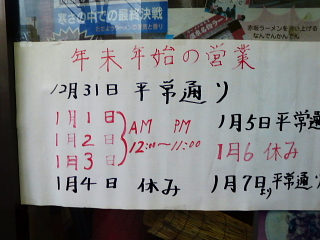 寒さの中での最終決戦
赤坂ラーメンを
なんでんかんでん
年末年始の営業
12月31日 平常通り
1月1日
1月2日
1月3日
AM PM
12:00〜11:00
1月4日 休み
1月5日平常通
1月6 休み
1月7日より平常通り